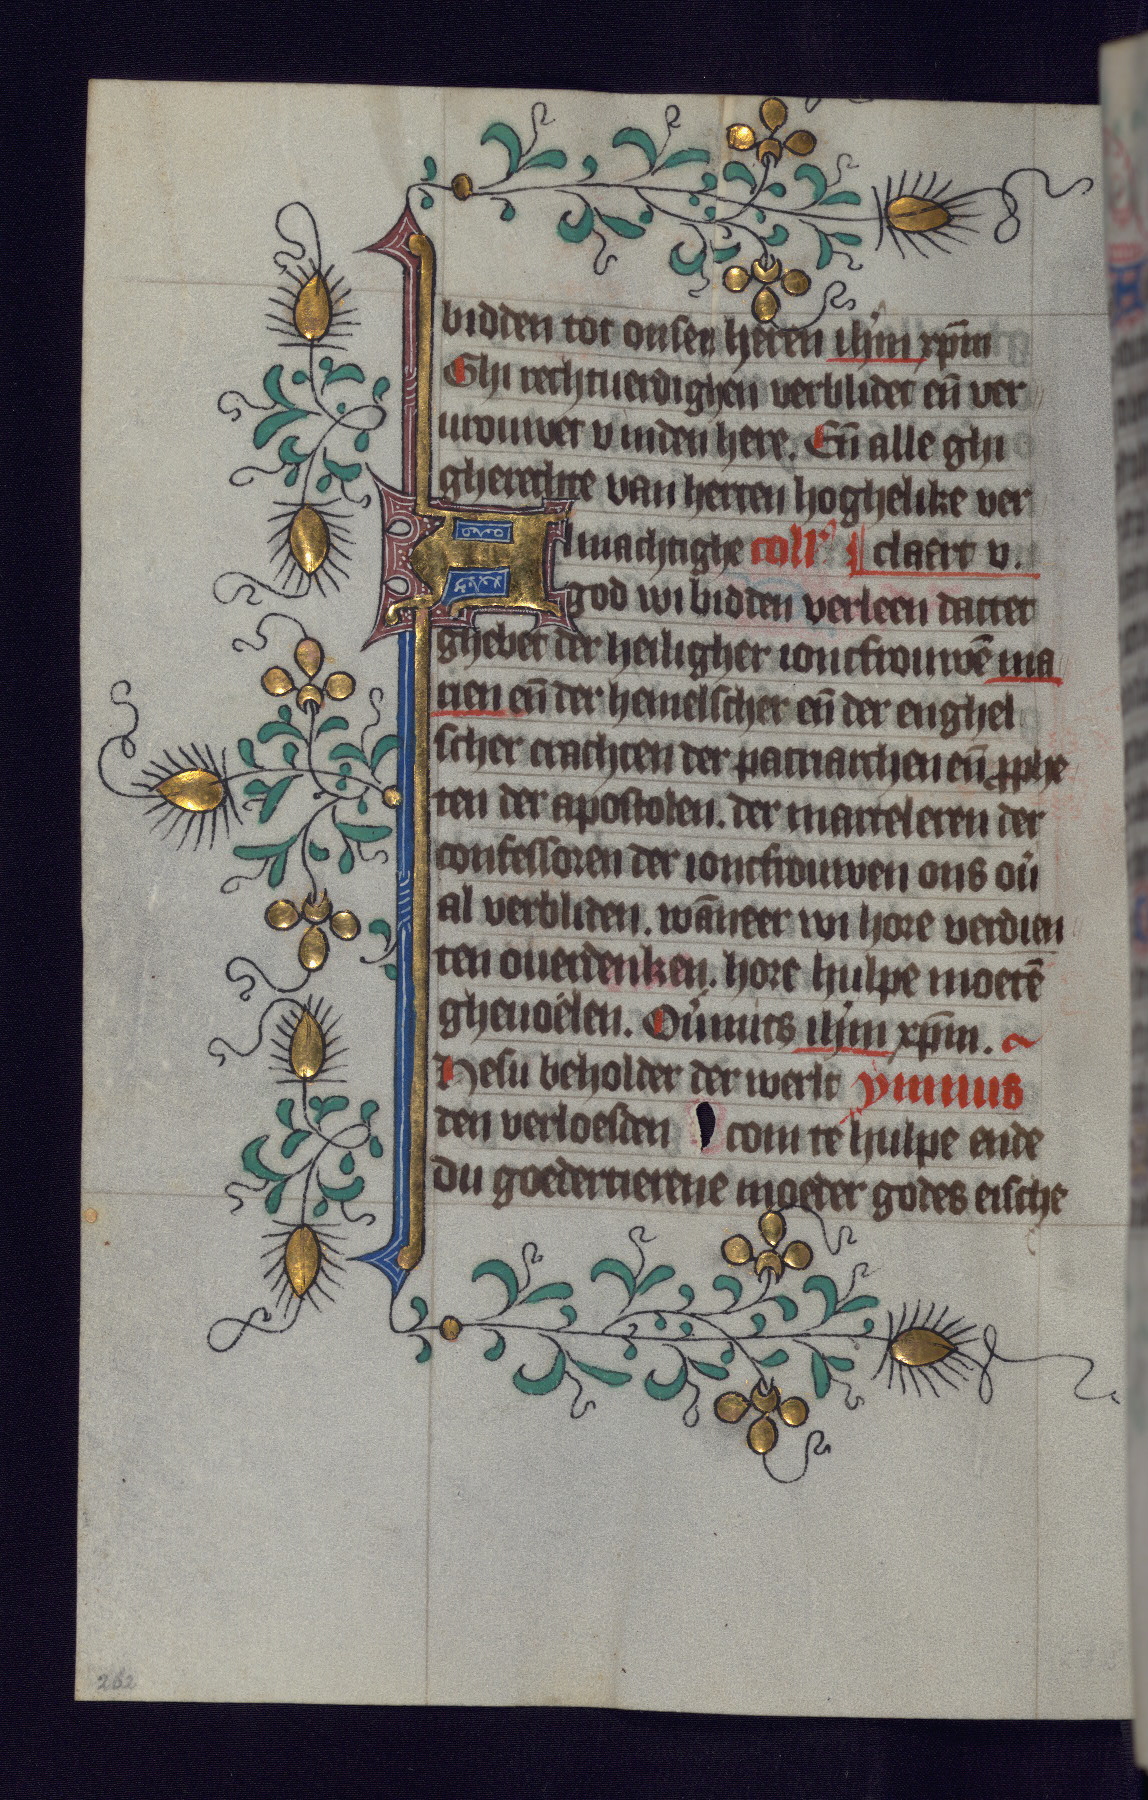 bidden tot onsen heren ih̄m xp̄m
Ghi rechtuerdighen verblidet en̄ ver
urouwet v inden here. En̄ alle ghi
gherechte van herten hoghelike ver
Almachtighe coll' claert v.
god wi bidden verleen dattet
ghebet der heiligher ioncfrouwē ma
rien en̄ der hemelscher en̄ der enghel
scher crachten der patriarchen en̄ pphe
ten der apostolen. der marteleren der
confessoren der ioncfrouwen ons ou͛
al verbliden. wāneer wi hore verdien
ten ouerdenken. hore hulpe moetē
gheuoelen. Ou͛mits ih̄m xp̄m.
Ihesu beholder der werlt ymnus
den verloesden com te hulpe ende
du goedertierene moeder godes eische
262